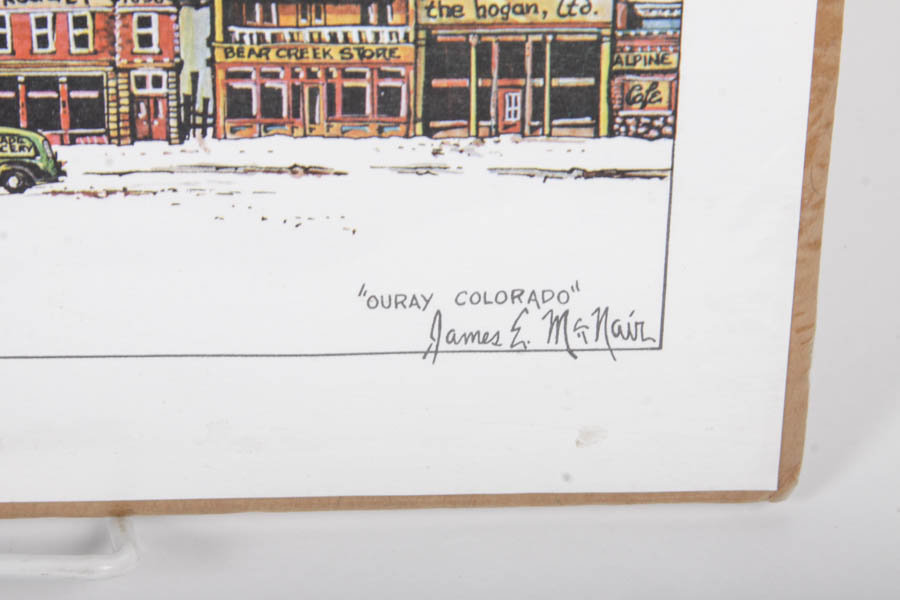 the hogan, ltd.
BEAR CREEK STORE
ALPINE
Cafe.
"OURAY COLORADO"
James E. McNair